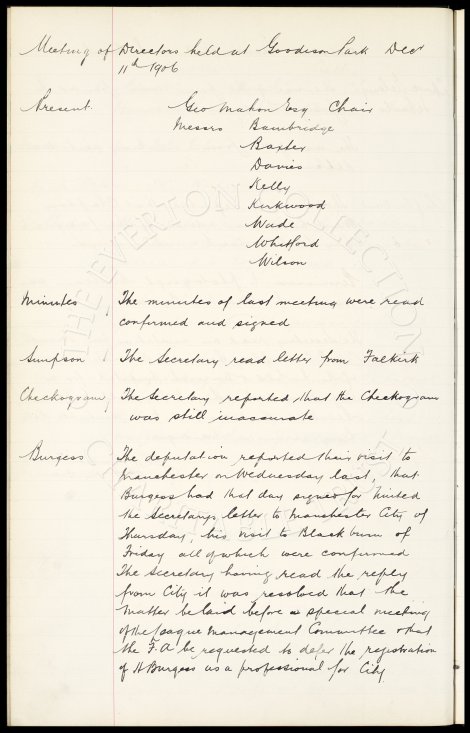 Meeting of Directors held at Goodison Park Decr
11th 1906
Present. Geo Mahon Esq Chair
Messrs Bainbridge
Baxter
Davies
Kelly
Kirkwood
Wade
Whitford
Wilson
Minutes The minutes of last meeting were read
confirmed and signed
Simpson The Secretary read letter from Falkirk
Checkogram The Secretary reported that the Checkogram
was still inaccurate
Burgess The deputation reported their visit to
Manchester on Wednesday last, that
Burgess had that day signed for United
the Secretarys letter to Manchester City of
Thursday, his visit to Blackburn of
Friday all of which were confirmed
The Secretary having read the reply
from City it was resolved that the
matter be laid before a special meeting
of the League Management Committee & that
the F.A be requested to defer the registration
of H Burgess as a professional for City
THE EVERTON COLLECTION